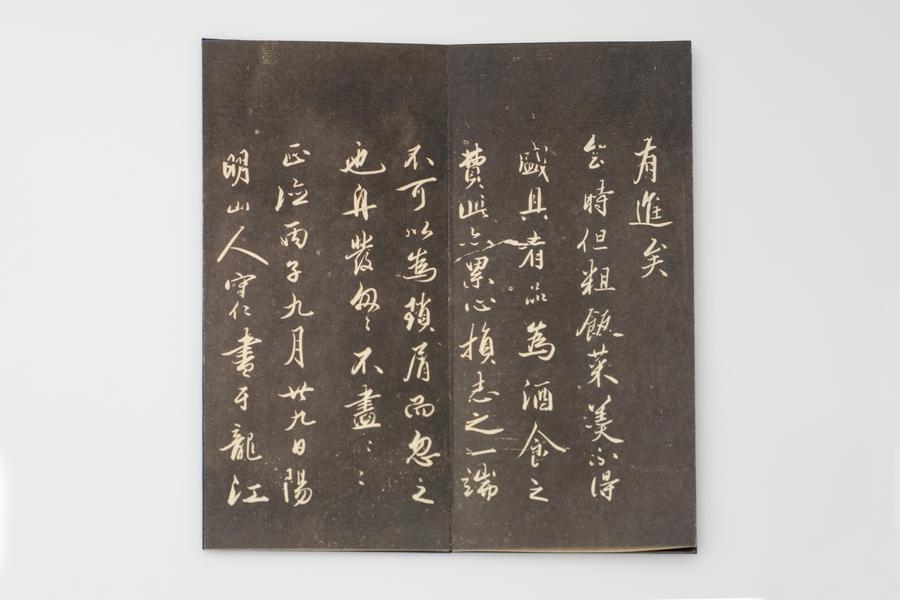 有進矣
會時但粗飯菜羹不得
盛具肴品為酒食之
費此亦累心損志之一端
不可以為瑣屑而忽之
也舟發匆々不盡々々
正德丙子九月廿九日陽
明山人守仁書于龍江